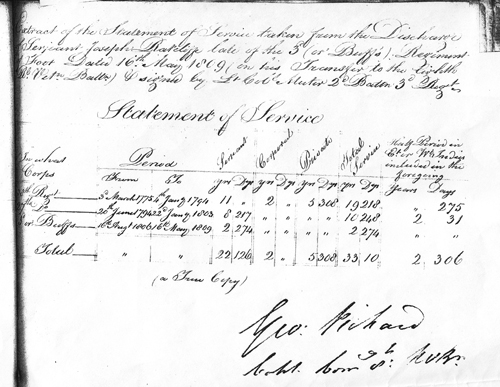 Extract of the Statement of Service taken from the Discharge
Serjeant Joseph Ratclyfe late of the 3d (or Buffs) Regiment
Foot Dated 16th May 1809 (on his Transfer to the Eighth
Vetn. Battn.) & signed by Lt. Col. Muter 2d Battn. 3d Regt.
Statement of Service
In what Corps Period Serjeant Corporal Private Total Service Half Period in Et. or Wt. Indies included in the foregoing
From To Yrs Dys Yrs Dys Yrs Dys Yrs Dys Years Days
Regt. 5 March 1775 4th Jany. 1794 11 " 2 " 5 308 19 218 " 275
20th June 1794 22d Jany. 1803 8 217 " " " " 10 248 2 31
or Buffs 16th Augt. 1806 16th May 1809 2 274 " " " " 2 274 " "
Total " " 22 126 2 " 5 308 33 10 2 306
(a True Copy)
Geo: Pichard